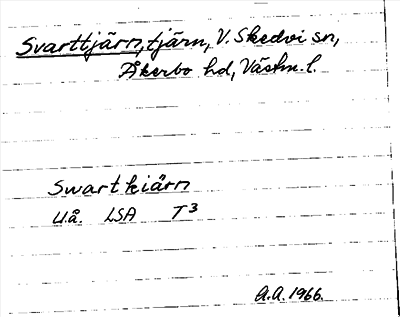 Svarttjärn, tjärn, V. Skedvi sn,
Åkerbo hd, Västm. l.
Swartkiärn
U.å. LSA T3
A.A. 1966.